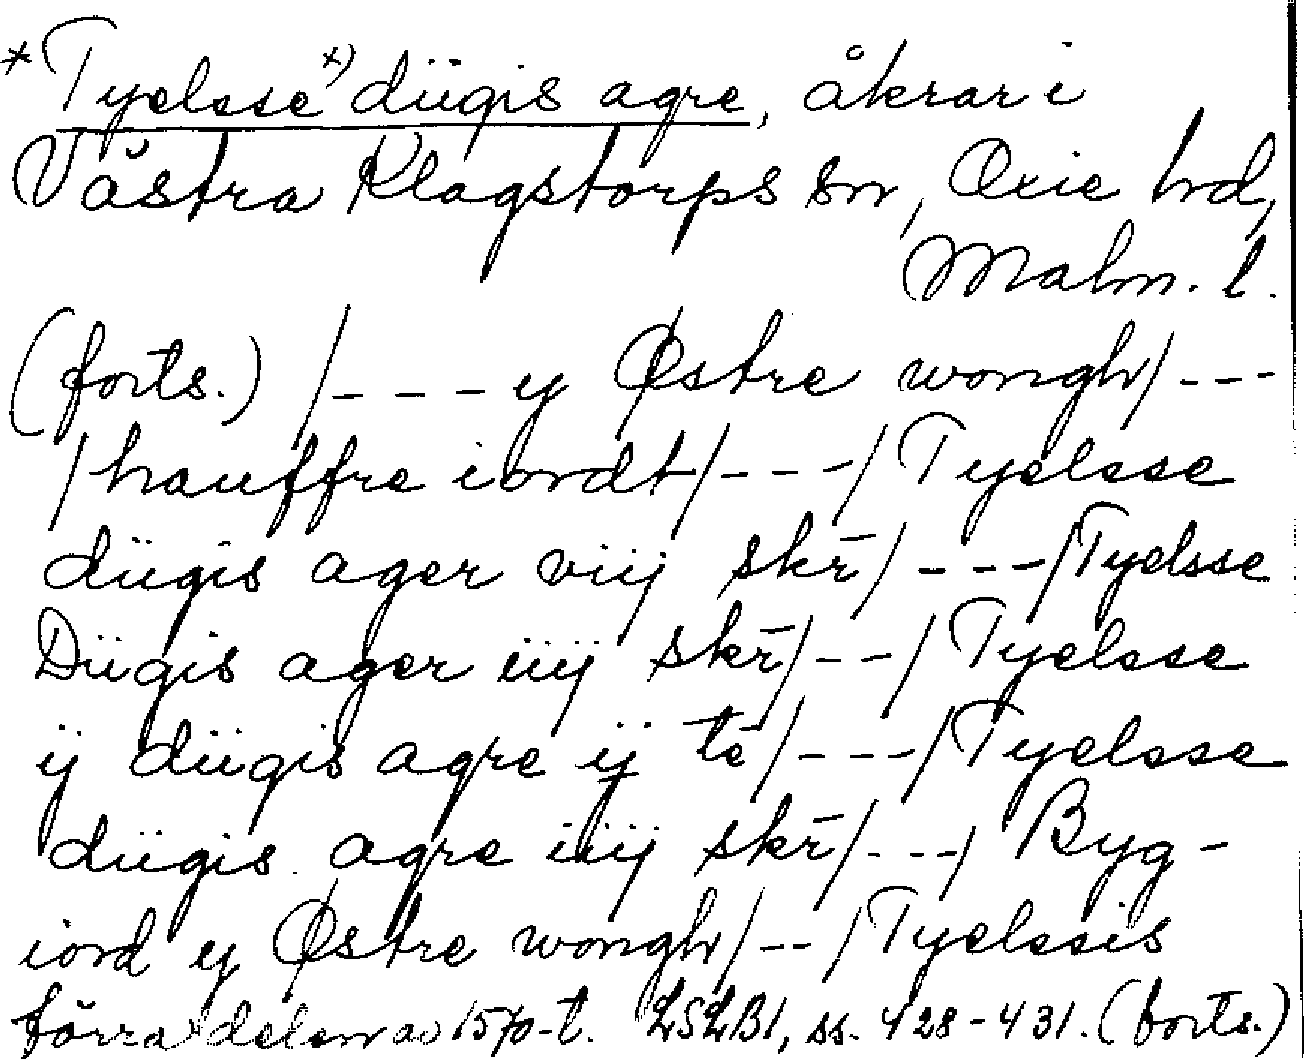 *Tyelsse x) diigis agre, åkrar i
Västra Klagstorps sn, Oxie hd,
Malm. l.
(forts.) /---y Østre wongh/---
/hauffre iordt/---/Tyelsse
diigis ager viij skr̄/---/Tyelsse
Diigis ager iiij skr̄/--/Tyelsse
ij diigis agre ij tē/---/Tyelsse
diigis agre iiij skr̄/---/ Byg-
iord y Østre wongh/--/Tyelssis
förra delen av 1570-t. LSLB1, ss. 428-431. (forts.)